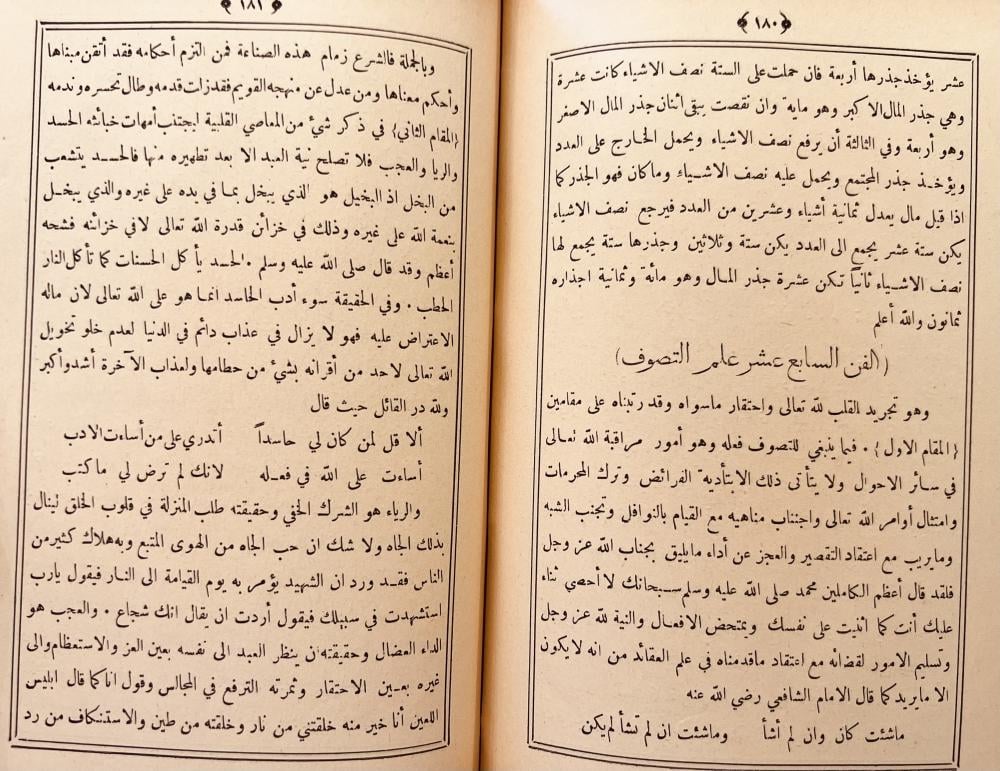 ﴿ ١٨٠ ﴾
عشر يؤخذ جذرها أربعة فان حملت على الستة نصف الاشياء كانت عشرة
وهي جذر المال الاكبر وهو مایة وان نقصت يبقى اثنان جذر المال الاصغر
وهو أربعة وفي الثالثة أن يرفع نصف الاشياء ويحمل الخارج على العدد
ويؤخذ جذر المجتمع ويحمل عليه نصف الاشياء وماكان فهو الجذر كما
اذا قيل مال يعدل ثمانية أشياء وعشرين من العدد فيرجع نصف الاشياء
يكن ستة عشر يجمع الى العدد يكن ستة وثلاثين وجذرها ستة يجمع لها
نصف الاشياء ثانياً تكن عشرة جذر المال وهو مائة وثمانية اجذاره
ثمانون والله أعلم
(الفن السابع عشر علم التصوف)
وهو تجريد القلب لله تعالى واحتقار ماسواه وقد رتبناه على مقامين
{المقام الاول} . فيما ينبغي للتصوف فعله وهو أمور مراقبة الله تعالى
في سائر الاحوال ولا يتأتى ذلك الابتأدية الفرائض وترك المحرمات
وامتثال أوامر الله تعالى واجتناب مناهيه مع القيام بالنوافل وتجنب الشبه
ومايريب مع اعتقاد التقصير والعجز عن أداء مايليق بجناب الله عز وجل
فلقد قال أعظم الكاملين محمد صلى الله عليه وسلم سبحانك لا أحصي ثناء
عليك أنت كما اثنيت على نفسك وبمتحض الافعال والنية لله عز وجل
وتسليم الامور لقضائه مع اعتقاد ماقدمناه في علم العقائد من انه لايكون
الا مايريد كما قال الامام الشافعي رضي الله عنه
ماشئت كان وان لم أشأ وماشئت ان لم تشأ لم يكن
﴿ ١٨١ ﴾
وبالجملة فالشرع زمام هذه الصناعة فمن التزم أحكامه فقد أتقن مبناها
وأحكم معناها ومن عدل عن منهجه القويم فقد زات قدمه وطال تحسره وندمه
{المقام الثاني} في ذكر شئ من المعاصي القلبية ليجتنب أمهات خبائثه الحسد
والريا والعجب فلا تصلح نية العبد الا بعد تطهيره منها فالحسد يتشعب
من البخل اذ البخيل هو الذي يبخل بما في يده على غيره والذي يبخل
بنعمة الله على غيره وذلك في خزائن قدرة الله تعالى لافي خزائنه فشحه
أعظم وقد قال صلى الله عليه وسلم . الحسد يأكل الحسنات كما تأكل النار
الحطب . وفي الحقيقة سوء أدب الحاسد انما هو على الله تعالى لان ماله
الاعتراض عليه فهو لا يزال في عذاب دائم في الدنيا لعدم خلو تخويل
الله تعالى لاحد من أقرانه بشئ من حطامها ولعذاب الآخرة أشد وأكبر
ولله در القائل حيث قال
ألا قل لمن كان لي حاسداً أتدري على من أساءت الادب
أساءت على الله في فعله لانك لم ترض لي ماكتب
والرياء هو الشرك الخفي وحقيقته طلب المنزلة في قلوب الخلق لينال
بذلك الجاه ولا شك ان حب الجاه من الهوى المتبع وبه هلاك كثير من
الناس فقد ورد ان الشهيد يؤمر به يوم القيامة الى النار فيقول يارب
استشهدت في سبيلك فيقول أردت ان يقال انك شجاع . والعجب هو
الداء العضال وحقيقته ان ينظر العبد الى نفسه بعين العز والاستعظام والى
غيره بعين الاحتقار وثمرته الترفع في المجالس وقول انا كما قال ابليس
اللعين أنا خير منه خلقتني من نار وخلقته من طين والاستنكاف من رد